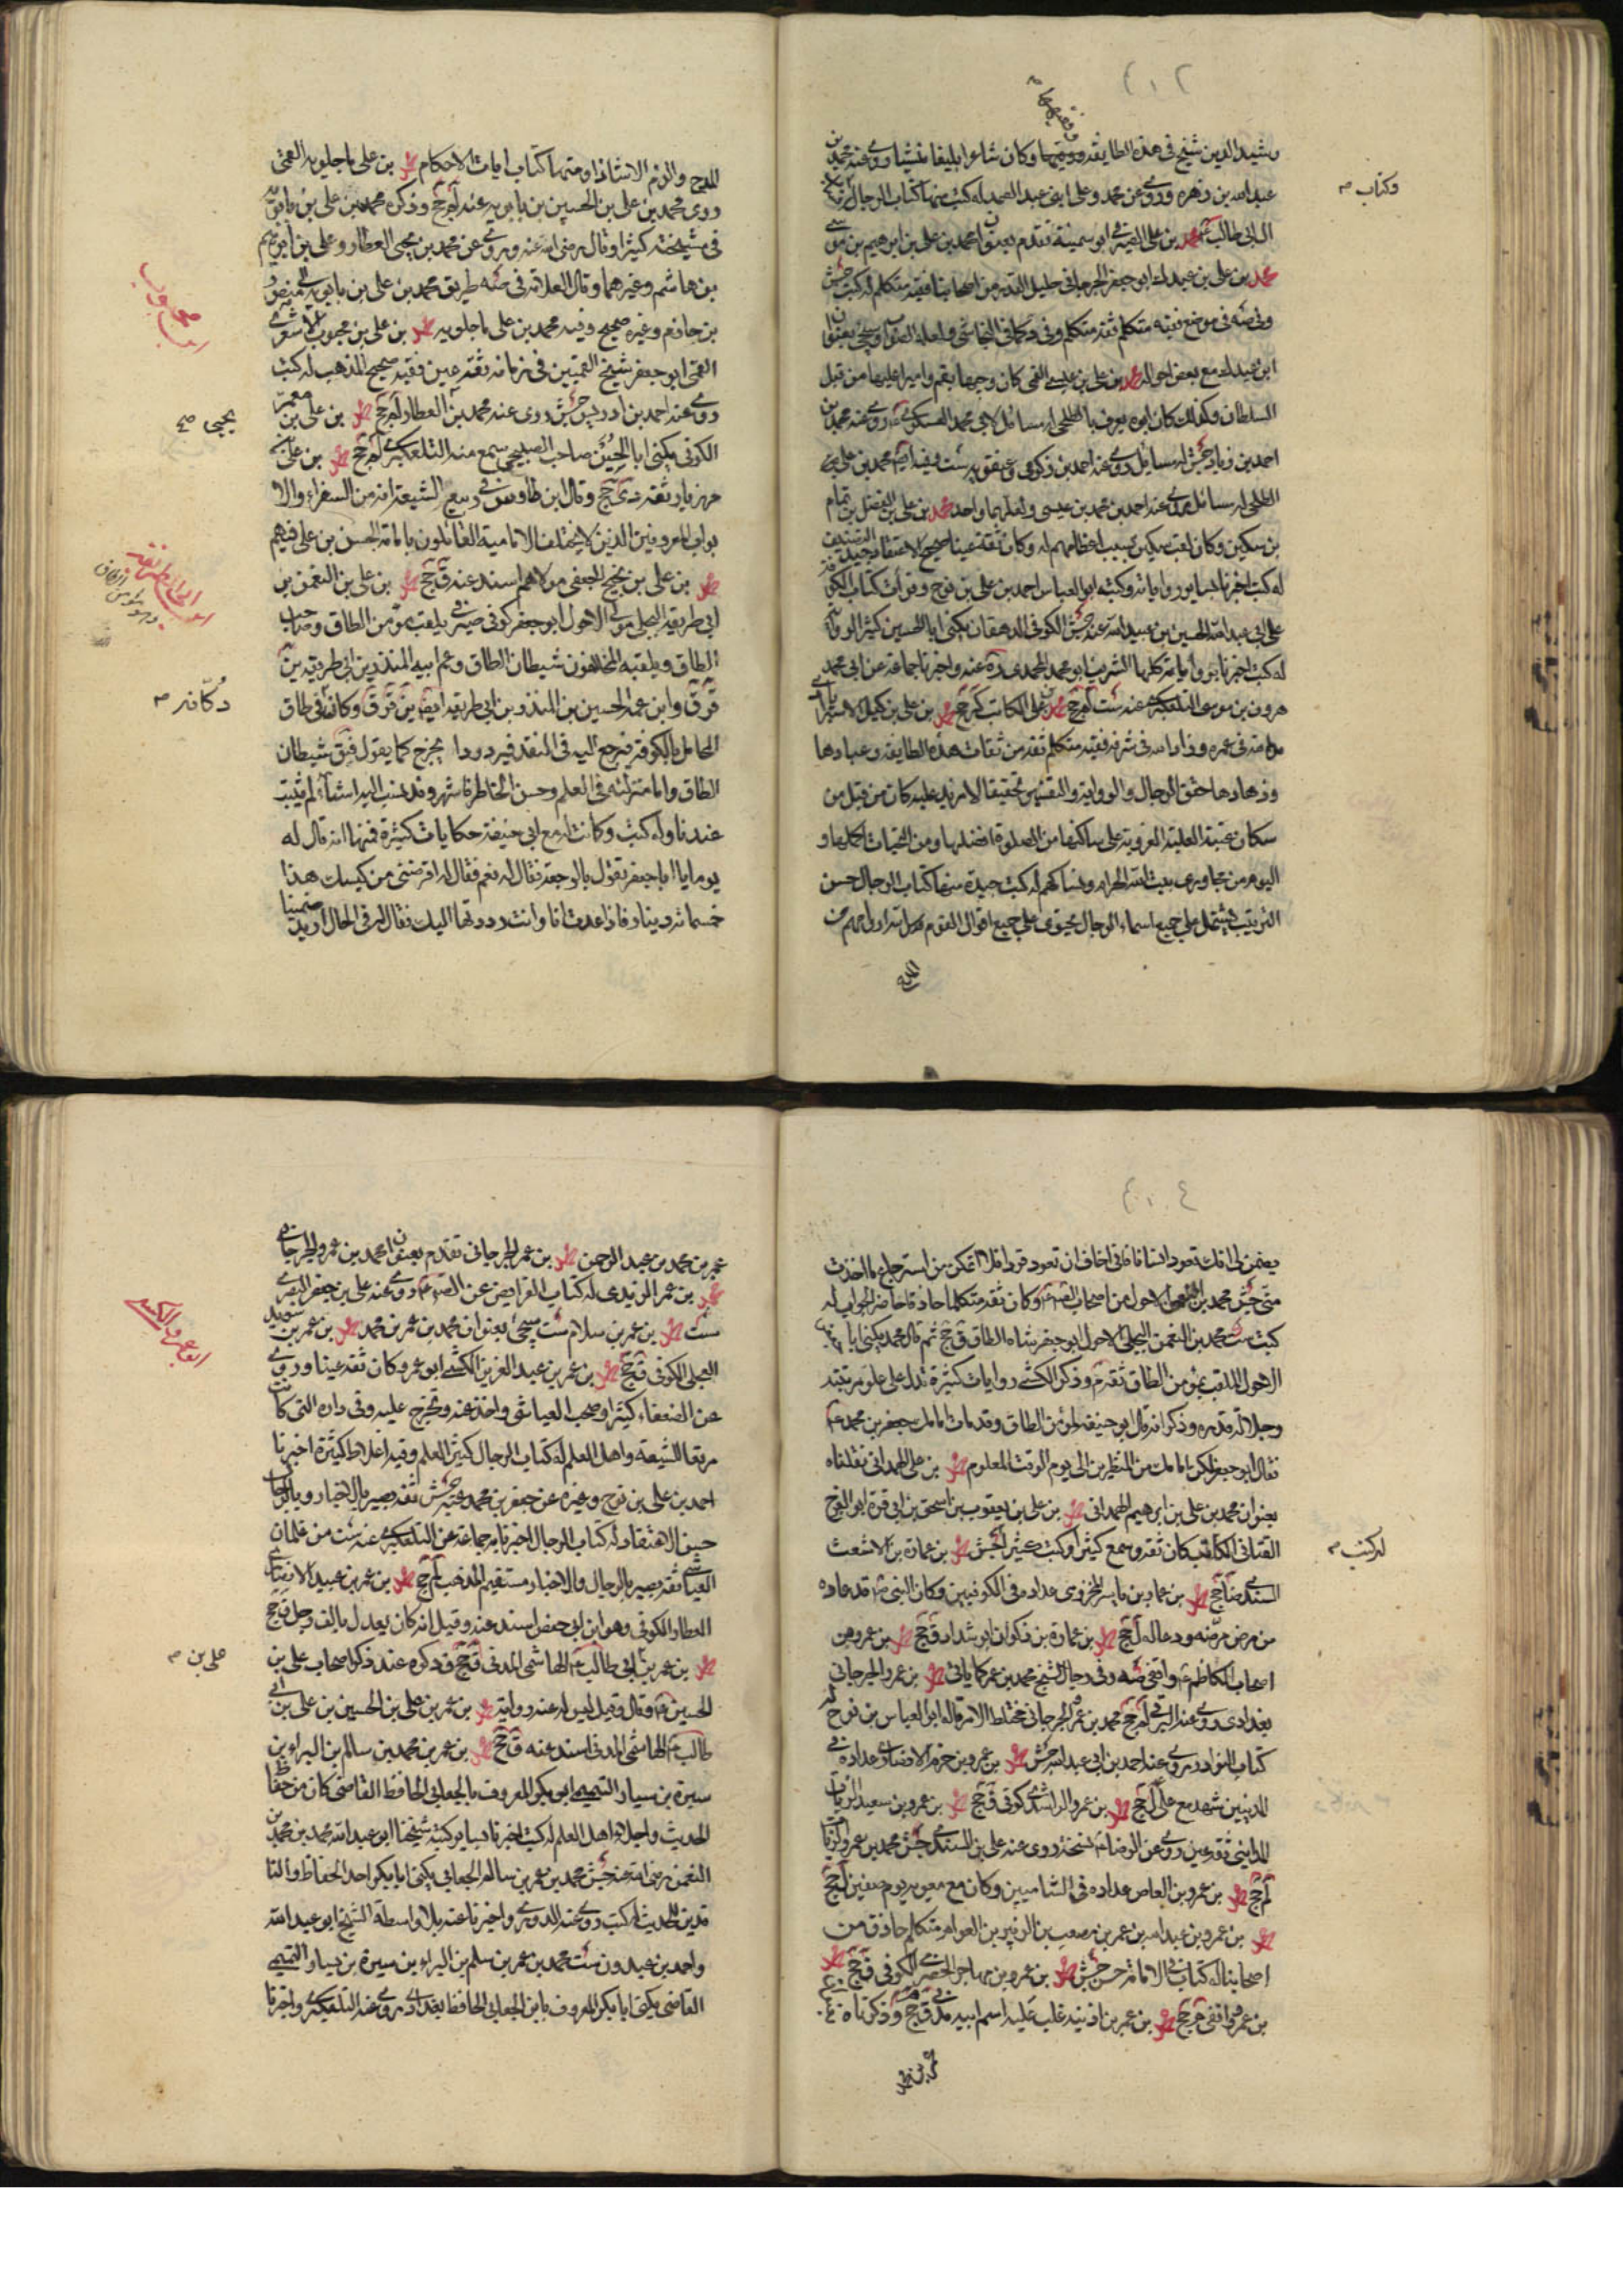 رشيد الدين شيخ في هذه الطايفة وفقيهها وكان شاعرا بليغا منشيا روى عنه محمد بن
عبد الله بن زهرة وروى عن محمد وعلى ابنى عبد الصمد له كتب منها كتاب الرجال
وكتاب
ال ابى طالب محمد بن على الصيرفى ابو سمينة تقدم بعنوان محمد بن على بن ابرهيم بن موسى
محمد بن على بن عبدك ابو جعفر الجرجانى جليل القدر من اصحابنا فقيه متكلم له كتب جش
ابن عبدك مع بعض احواله محمد بن على بن عيسى القمى كان وجها بقم واميرا عليها من قبل
السلطان وكذلك كان ابوه يعرف بالطلحى له مسائل لابى محمد العسكرى روى عنه محمد بن
احمد بن زياد جش له مسائل روى عنه احمد بن ذكرى
الطلحى له مسائل روى عنه احمد بن محمد بن عيسى ولعلهما واحد محمد بن على بن الفضل بن تمام
بن سكين وكان لقب سكين بسبب اعظامهم له وكان ثقة عينا صحيح الاعتقاد جيد التصنيف
له كتب اخبرنا بساير رواياته وكتبه ابو العباس احمد بن على بن نوح وقرات كتاب الكوفة
على ابى عبد الله الحسين بن عبيد الله عنه جش الكوفى الدهقان يكنى ابا الحسين كثير الرواية
له كتب اخبرنا برواياته كلها الشريف ابو محمد المحمدى ره عنه واخبرنا جماعة عن ابى محمد
هرون بن موسى التلعكبرى عنه ست لم جخ محمد بن على الكاتب كر جخ محمد بن على بن كيل الاسترابادى
مد الله فى عمره وزاد الله فى شرفه فقيه متكلم ثقة من ثقات هذه الطايفة وعبادها
وزهادها حقق الرجال والرواية والتفسير تحقيقا لا مزيد عليه كان من قبل من
سكان عتبة العلية الغروية على ساكنها من الصلوة افضلها ومن التحيات اكملها و
اليوم من مجاورى بيت الله الحرام ونساكهم له كتب جيدة منها كتاب الرجال حسن
الترتيب يشتمل على جميع اسماء الرجال يحتوى على جميع اقوال القوم قدس الله ارواحهم من
المدح
المدح والذم الا شاذا ومنها كتاب ايات الاحكام محمد بن على ماجلويه القمى
روى محمد بن على بن الحسين بن بابويه عنه لم جخ وذكره محمد بن على بن بابويه
فى مشيخته كثيرا وقال رضى الله عنه وروى عن محمد بن يحيى العطار وعلى بن ابرهيم
بن هاشم وغيرهما وقال العلامة فى صه طريق محمد بن على بن بابويه الى منصور
بن حازم وغيره صحيح وفيه محمد بن على ماجلويه محمد بن على بن محبوب الاشعرى
القمى ابو جعفر شيخ القميين فى زمانه ثقة عين فقيه صحيح المذهب له كتب
روى عنه احمد بن ادريس جش روى عنه محمد بن العطار لم جخ محمد بن على بن معمر
يحيى صح
الكوفى يكنى ابا الحسين صاحب الصبيحى سمع منه التلعكبرى لم جخ محمد بن على بن
مهزيار ثقة دى جخ وقال ابن طاوس فى ربيع الشيعة انه من السفراء والا
بواب المعروفين الذين لا يختلف الامامية القائلون بامامة الحسن بن على فيهم
محمد بن على بن نجيح الجعفى مولاهم اسند عنه ق جخ محمد بن على بن النعمن بن
ابى طريفة البجلى مولى الاحول ابو جعفر كوفى صيرفى يلقب مؤمن الطاق وصاحب
الطاق ويلقبه المخالفون شيطان الطاق وعم ابيه المنذر بن ابى طريفة
وابن عمه الحسين بن المنذر بن ابى طريفة ايضا وكان دكانه فى طاق
المحامل بالكوفة فيرجع اليه فى النقد فيرد ردا يخرج كما يقول فيق شيطان
الطاق واما منزلته فى العلم وحسن الخاطر فاشهر وقد نسب اليه اشياء لم تثبت
عندنا وله كتب وكانت له مع ابى حنيفة حكايات كثيرة فمنها انه قال له
يوما يا ابا جعفر تقول بالرجعة فقال له نعم فقال له اقرضنى من كيسك هذا
خمسمائة دينار فاذا عدت انا وانت رددتها اليك فقال له فى الحال اريد ضمينا
يضمن لى انك تعود انسانا فانى اخاف ان تعود قردا فلا اتمكن من استرجاع ما اخذت
منى جش محمد بن النعمن الاحول من اصحاب الكاظم وكان ثقة متكلما حاذقا حاضر الجواب له
كتب ست محمد بن النعمن البجلى الاحول ابو جعفر شاه الطاق ق جخ ثم قال محمد يكنى ابا جعفر
الاحول الملقب بمؤمن الطاق ثقة م وذكر الكشى روايات كثيرة تدل على علو مرتبته
وجلالة قدره وذكر انه قال ابو حنيفة لمؤمن الطاق وقد مات امامك جعفر بن محمد ع
فقال ابو جعفر لكن امامك من المنظرين الى يوم الوقت المعلوم محمد بن على الهمدانى نقلناه
بعنوان محمد بن على بن ابرهيم الهمدانى محمد بن على بن يعقوب بن اسحق بن ابى قرة ابو الفرج
القنانى الكاتب كان ثقة وسمع كثيرا وكتب كثيرا له كتب جش محمد بن عمارة بن الاشعث
محمد بن عمار بن ياسر المخزومى عداده فى الكوفيين وكان النبى ص قد عاده
من مرض مرضه ودعا له ل جخ محمد بن عمارة بن ذكوان ابو شداد ق جخ محمد بن عمر ومن
اصحاب الكاظم واقفى صه وفى رجال الشيخ محمد بن عمر كما ياتى محمد بن عمر والجرجانى
بغدادى روى عنه البرقى لم جخ محمد بن عمر الجرجانى مختلط الامر قاله ابو العباس بن نوح له
كتاب النوادر روى عنه احمد بن ابى عبد الله جش محمد بن عمرو بن حزم الانصارى عداده فى
المدنيين شهد مع على ل جخ محمد بن عمرو الراشدى كوفى ق جخ محمد بن عمرو بن سعيد الزيات
المداينى ثقة عين روى عن الرضا نسخة روى عنه على بن السندى جش محمد بن عمرو الزيات
لم جخ محمد بن عمرو بن العاص عداده فى الشاميين وكان مع معويه يوم صفين ل جخ
محمد بن عمرو بن عبد الله بن عمر بن مصعب بن الزبير بن العوام متكلم حاذق من
اصحابنا له كتاب فى الامامة حسن جش محمد بن عمرو بن مهاجر الحضرمى الكوفى ق جخ محمد
بن عمر واقفى م جخ محمد بن عمر بن اذينه غلب عليه اسم ابيه مدنى ق جخ وذكرناه
عمر بن محمد بن عبد الرحمن محمد بن عمر الجرجانى تقدم بعنوان محمد بن عمرو الجرجانى
محمد بن عمر الزيدى له كتاب الفرايض عن الصادق روى عنه على بن جعفر البصرى
ست محمد بن عمر بن سلام ست سيجئ بعنوان محمد بن عمر بن محمد محمد بن عمر بن سويد
العجلى الكوفى ق جخ محمد بن عمر بن عبد العزيز الكشى ابو عمرو كان ثقة عينا وروى
عن الضعفاء كثيرا وصحب العياشى واخذ عنه وتخرج عليه وفى داره التى كانت
مرتعا للشيعة واهل العلم له كتاب الرجال كثير العلم وفيه اغلاط كثيرة اخبرنا
احمد بن على بن نوح وغيره عن جعفر بن محمد عنه جش ثقة بصير بالاخبار وبالرجال
حسن الاعتقاد له كتاب الرجال اخبرنا به جماعة عن التلعكبرى عنه ست من غلمان
العياشى ثقة بصير بالرجال والاخبار مستقيم المذهب لم جخ محمد بن عمر بن عبيد الانصارى
العطار الكوفى وهو ابن ابى حفص اسند عنه وقيل انه كان يعدل بالف رجل ق جخ
محمد بن عمر بن على بن ابى طالب الهاشمى المدنى ق جخ وذكره عند ذكر اصحاب على بن
الحسين وقال وقيل ليس له عنه رواية محمد بن عمر بن على بن الحسين بن على بن ابى
طالب الهاشمى المدنى اسند عنه ق جخ محمد بن عمر بن محمد بن سالم بن البراء بن
سبرة بن سيار التميمى ابو بكر المعروف بالجعابى الحافظ القاضى كان من حفاظ
الحديث واجلاء اهل العلم له كتب اخبرنا بساير كتبه شيخنا ابو عبد الله محمد بن محمد بن
النعمن رضى الله عنه جش محمد بن عمر بن سالم الجعابى يكنى ابا بكر احد الحفاظ والنا
قدين للحديث له كتب روى عنه الدورى واخبرنا عنه بلا واسطة الشيخ ابو عبد الله
واحمد بن عبدون ست محمد بن عمر بن سلم بن البراء بن سبرة بن سيار التميمى
القاضى يكنى ابا بكر المعروف بابن الجعابى الحافظ بغدادى روى عنه التلعكبرى واخبرنا